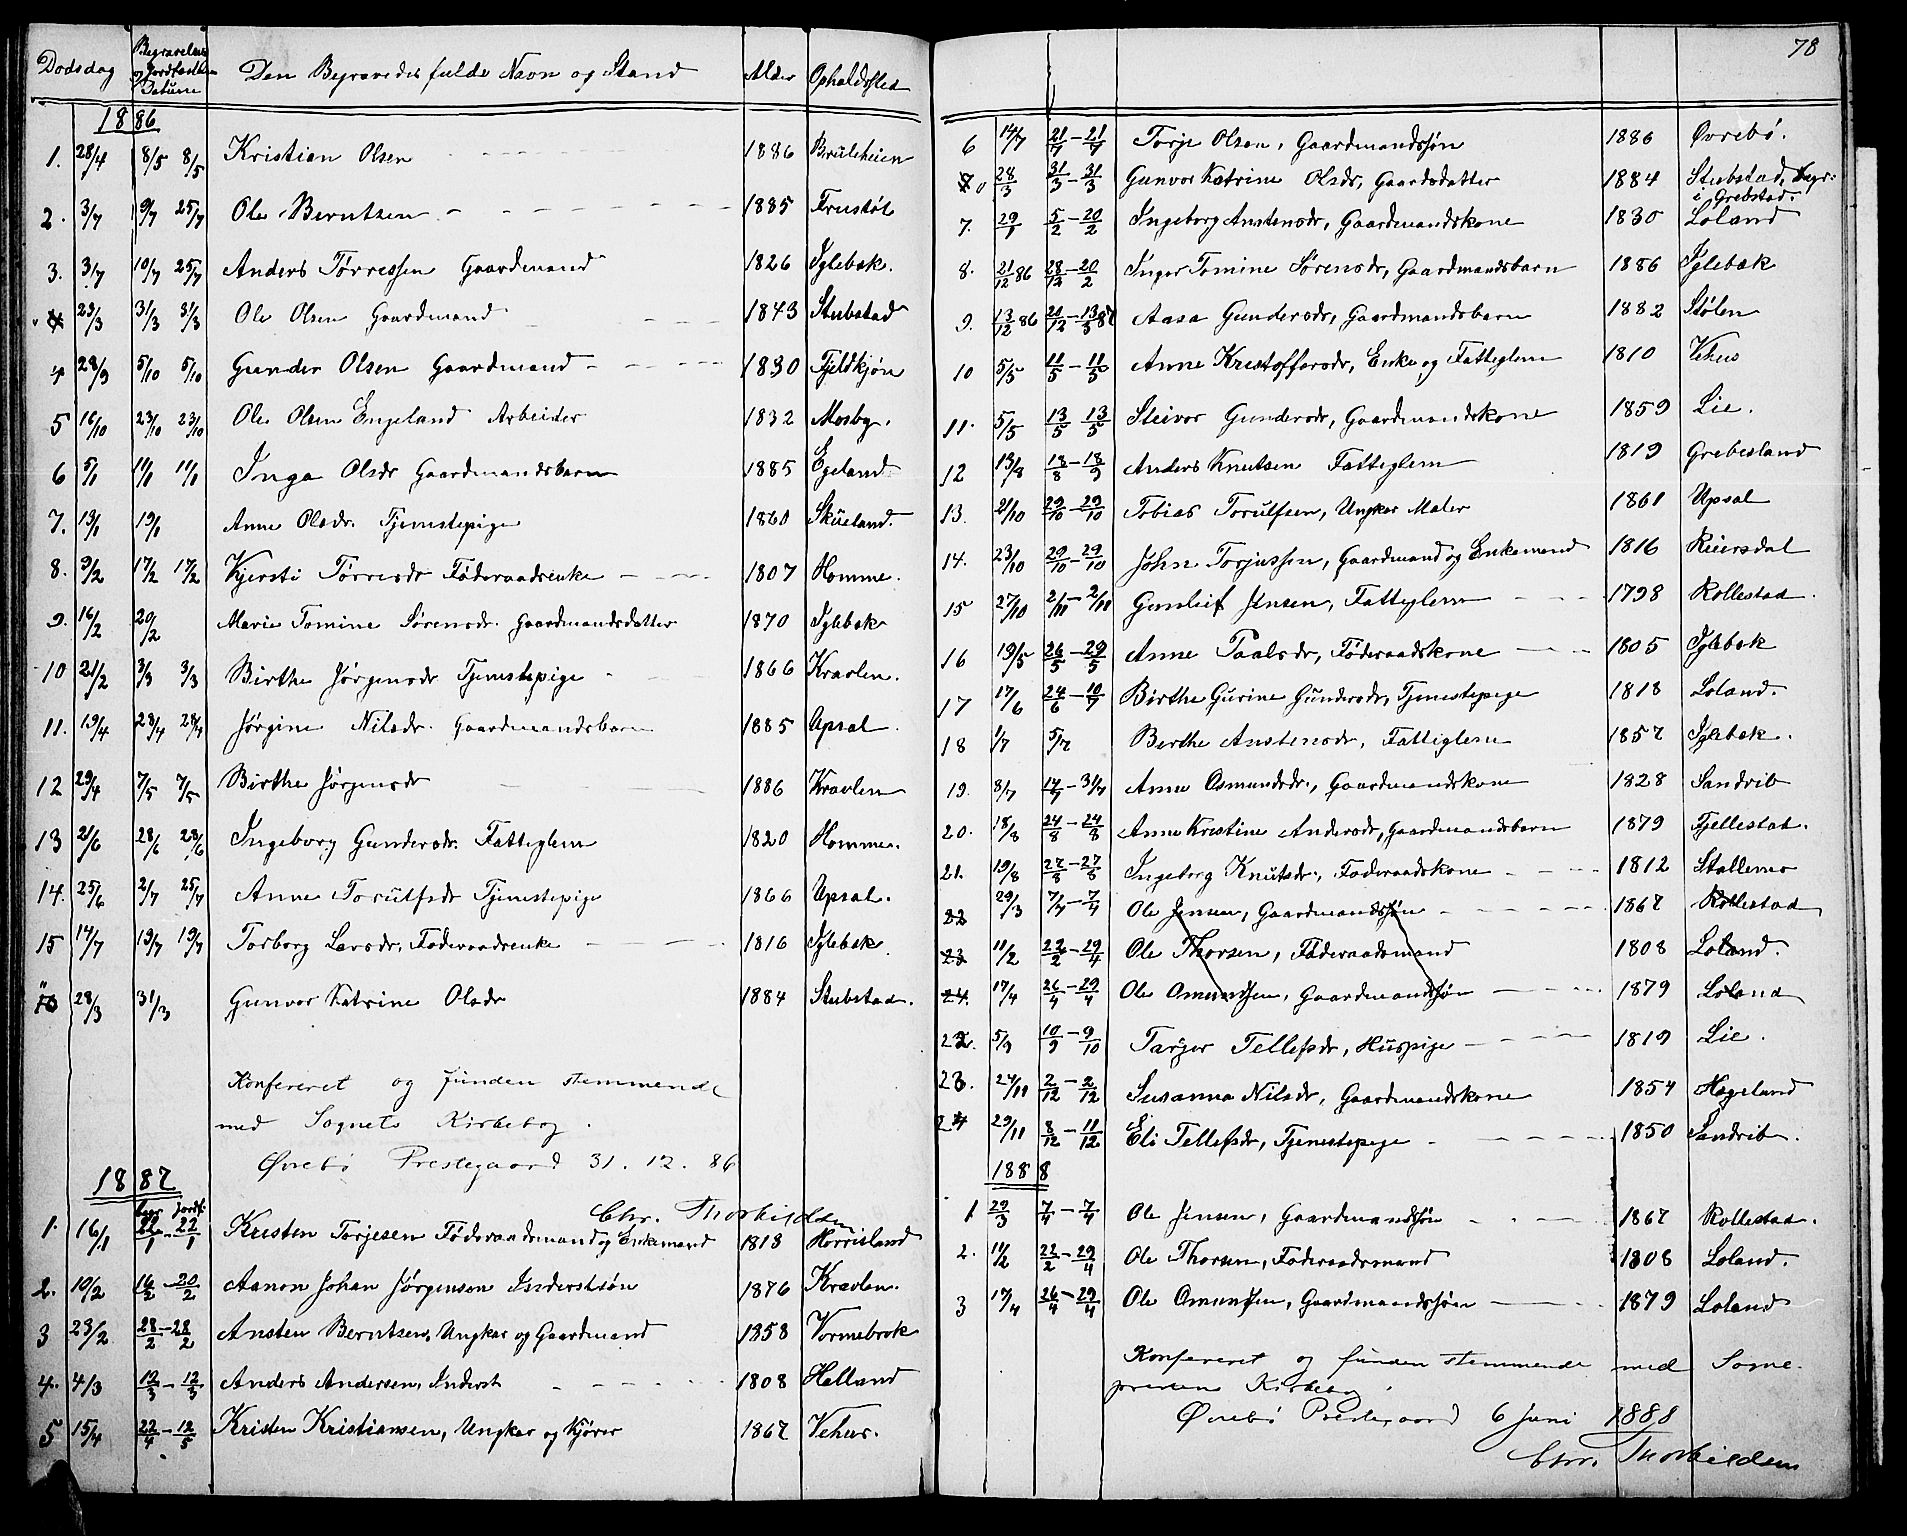 Dødsdag Begravelses og Jordfæstelses Datum Den Begravedes fulde Navn og Stand Alder Opholdssted
1886
1. 28/4 8/5 8/5 Kristian Olsen 1886 Bruleheien
2. 3/7 9/7 25/7 Ole Berntsen 1885 Frustøl
3. 3/7 10/7 25/7 Anders Tørressen Gaardmand 1826 Iglebæk.
23/3 31/3 31/3 Ole Olsen Gaardmand 1843 Stubstad
4 28/9 5/10 5/10 Gunder Olsen Gaardmand 1830 Fjeldkjøn
5 16/10 23/10 23/10 Ole Olsen Engeland Arbeider 1832 Mosby.
6 5/1 11/1 11/1 Inga Olsdr Gaardmandsbarn 1885 Egeland
7. 13/1 19/1 Anne Olsdr. Tjenestepige 1860 Skueland.
8. 9/2 17/2 17/2 Kjersti Tørresdr Føderaadsenke 1807 Homme.
9. 16/2 20/2 Marie Tomine Sørensdr. Gaardmandsdatter 1870 Iglebæk
10 21/2 3/3 3/3 Birthe Jørgensdr Tjenestepige 1866 Kravlen.
11. 19/4 28/4 28/4 Jørgine Nilsdr. Gaardmandsbarn 1885 Upsal.
12 29/4 7/5 7/5 Birthe Jørgensdr 1886 Kravlen
13 21/6 28/6 28/6 Ingeborg Gundersdr. Fattiglem 1820 Homme.
14. 25/6 2/7 25/7 Anne Torulfsdr Tjenestepige 1866 Upsal.
15 14/7 19/7 19/7 Torborg Larsdr, Føderaadsenke 1816 Iglebæk.
28/3 31/3 Gunvor Katrine Olsdr 1884 Stubstad.
Konfereret og funden stemmende
med Sognets Kirkebog.
Øvrebø Prestegaard 31.12.86
Chr. Thorkildsen
1887
begr jordf.
1. 16/1 22/1 - 22/1 Kristen Torjesen Føderaadsmand og Enkemand 1818 Horrisland
2. 10/2 16/2 - 20/2 Aanon Johan Jørgensen Inderstsøn 1876 Kravlen.
3 23/2 28/2 - 28/2 Ansten Berntsen, Ungkar og Gaardmand 1858 Vormebrok
4. 4/3 12/3 - 12/3 Anders Andersen, Inderst 1808 Helland
5 15/4 22/4 - 12/5 Kristen Kristiansen, Ungkar og Kjører 1867 Vehus.
78
6 14/7 21/7 - 21/7 Torje Olsen, Gaardmandssøn 1886 Øvrebø.
28/3 31/3 - 31/3 Gunvor Katrine Olsdr, Gaardsdatter 1884 Stubstad, begr.
i Grebstad.
7. 29/1 5/2 - 20/2 Ingeborg Anstensdr, Gaardmandskone 1830 Loland
8. 21/12 86 28/12 - 20/2 Inger Tomine Sørensdr, Gaardmandsbarn 1886 Iglebæk
9. 13/12 86 21/12 - 13/3 87 Aasa Gundersdr, Gaardmandsbarn 1882 Stølen
10 5/5 11/5 - 11/5 Anne Kristoffersdr, Enke og Fattiglem 1810 Vehus
11. 5/5 13/5 13/5 Steivor Gundersdr, Gaardmandskone 1859 Lie.
12 13/8 18/8 - 18/9 Anders Knutsen Fattiglem 1819 Grebesland
13. 21/10 29/10 - 29/10 Tobias Torulfsen, Ungkar Maler 1861 Upsal
14. 23/10 29/10 - 29/10 John Torjussen, Gaardmand og Enkemand 1816 Reiersdal
15 27/10 2/11 - 2/11 Gunleif Jensen, Fattiglem 1798 Rollestad.
16 19/5 26/5 - 29/5 Anne Paalsdr, Føderaadskone 1805 Iglebæk
17 17/6 24/6 - 10/7 Birthe Gurine Gundersdr, Tjenestepige 1818 Loland.
18 1/7 5/7 Berthe Anstensdr, Fattiglem 1857 Iglebæk.
19. 8/7 17/7 - 31/7 Anne Osmundsdr, Gaardmandskone 1828 Sandrib
20. 18/8 24/8 - 24/8 Anne Kristine Andersdr, Gaardmandsbarn 1879 Fjellestad.
21. 19/8 27/8 - 27/8 Ingeborg Knutsdr, Føderaadskone 1812 Stallemo
22 29/3 7/4 - 7/4 Ole Jensen, Gaardmandssøn 1867 Rollestad
23 11/2 22/2 - 29/4 Ole Thorsen, Føderaadsmand 1808 Loland.
24. 17/4 26/4 - 29/4 Ole Omundsen, Gaardmandssøn 1879 Loland
22. 5/9 10/9 - 9/10 Targer Tellefsdr, Huspige 1819 Lie.
23. 24/11 2/12 - 2/12 Susanna Nilsdr, Gaardmandskone 1854 Hageland
24 29/11 8/12 - 11/12 Eli Tellefsdr, Tjenestepige 1850 Sandrib.
1888
1 29/3 7/4 - 7/4 Ole Jensen, Gaardmandssøn 1867 Rollestad.
2. 11/2 22/2 - 29/4 Ole Thorsen, Føderaadsmand 1808 Loland.
3 17/4 26/4 - 29/4 Ole Omunsen, Gaardmandssøn 1879 Loland
Konfereret og funden stemmende med Sogne-
prestens Kirkebog.
Øvrebø Prestegaard 6 Juni 1888
Chr. Thorkildsen